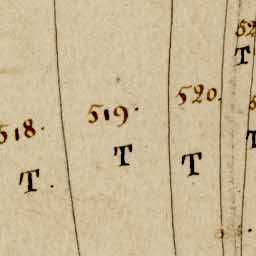 518.
T.
519.
T
520.
T
T